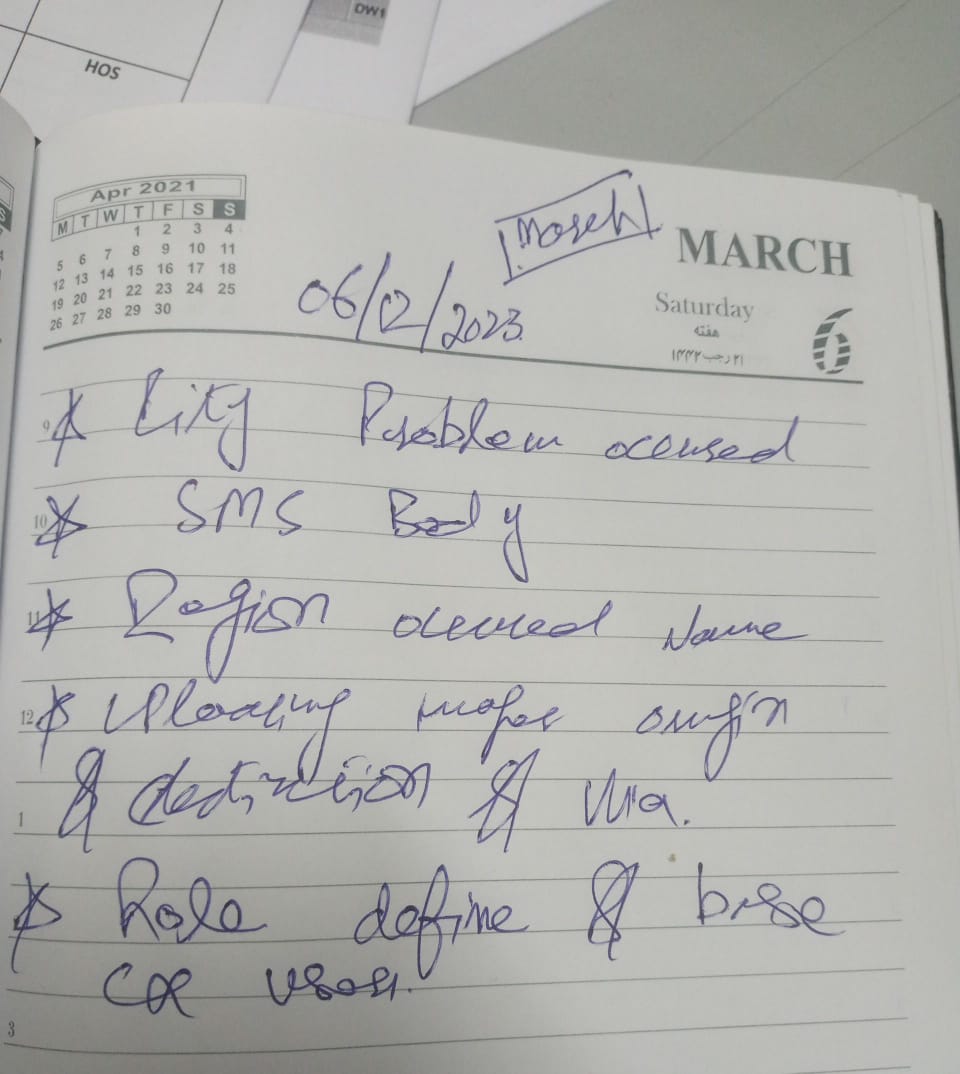 DW1
HOS
Apr 2021
M T W T F S S
1 2 3 4
5 6 7 8 9 10 11
12 13 14 15 16 17 18
19 20 21 22 23 24 25
26 27 28 29 30
March
MARCH
06/12/2023.
Saturday
هفته
۲۱ رجب ۱۴۴۲
6
9 City Problem occured
10 SMS Body
11 Region occured Name
12 Uploading origin
& & Via.
1
Role define & base
user.
3